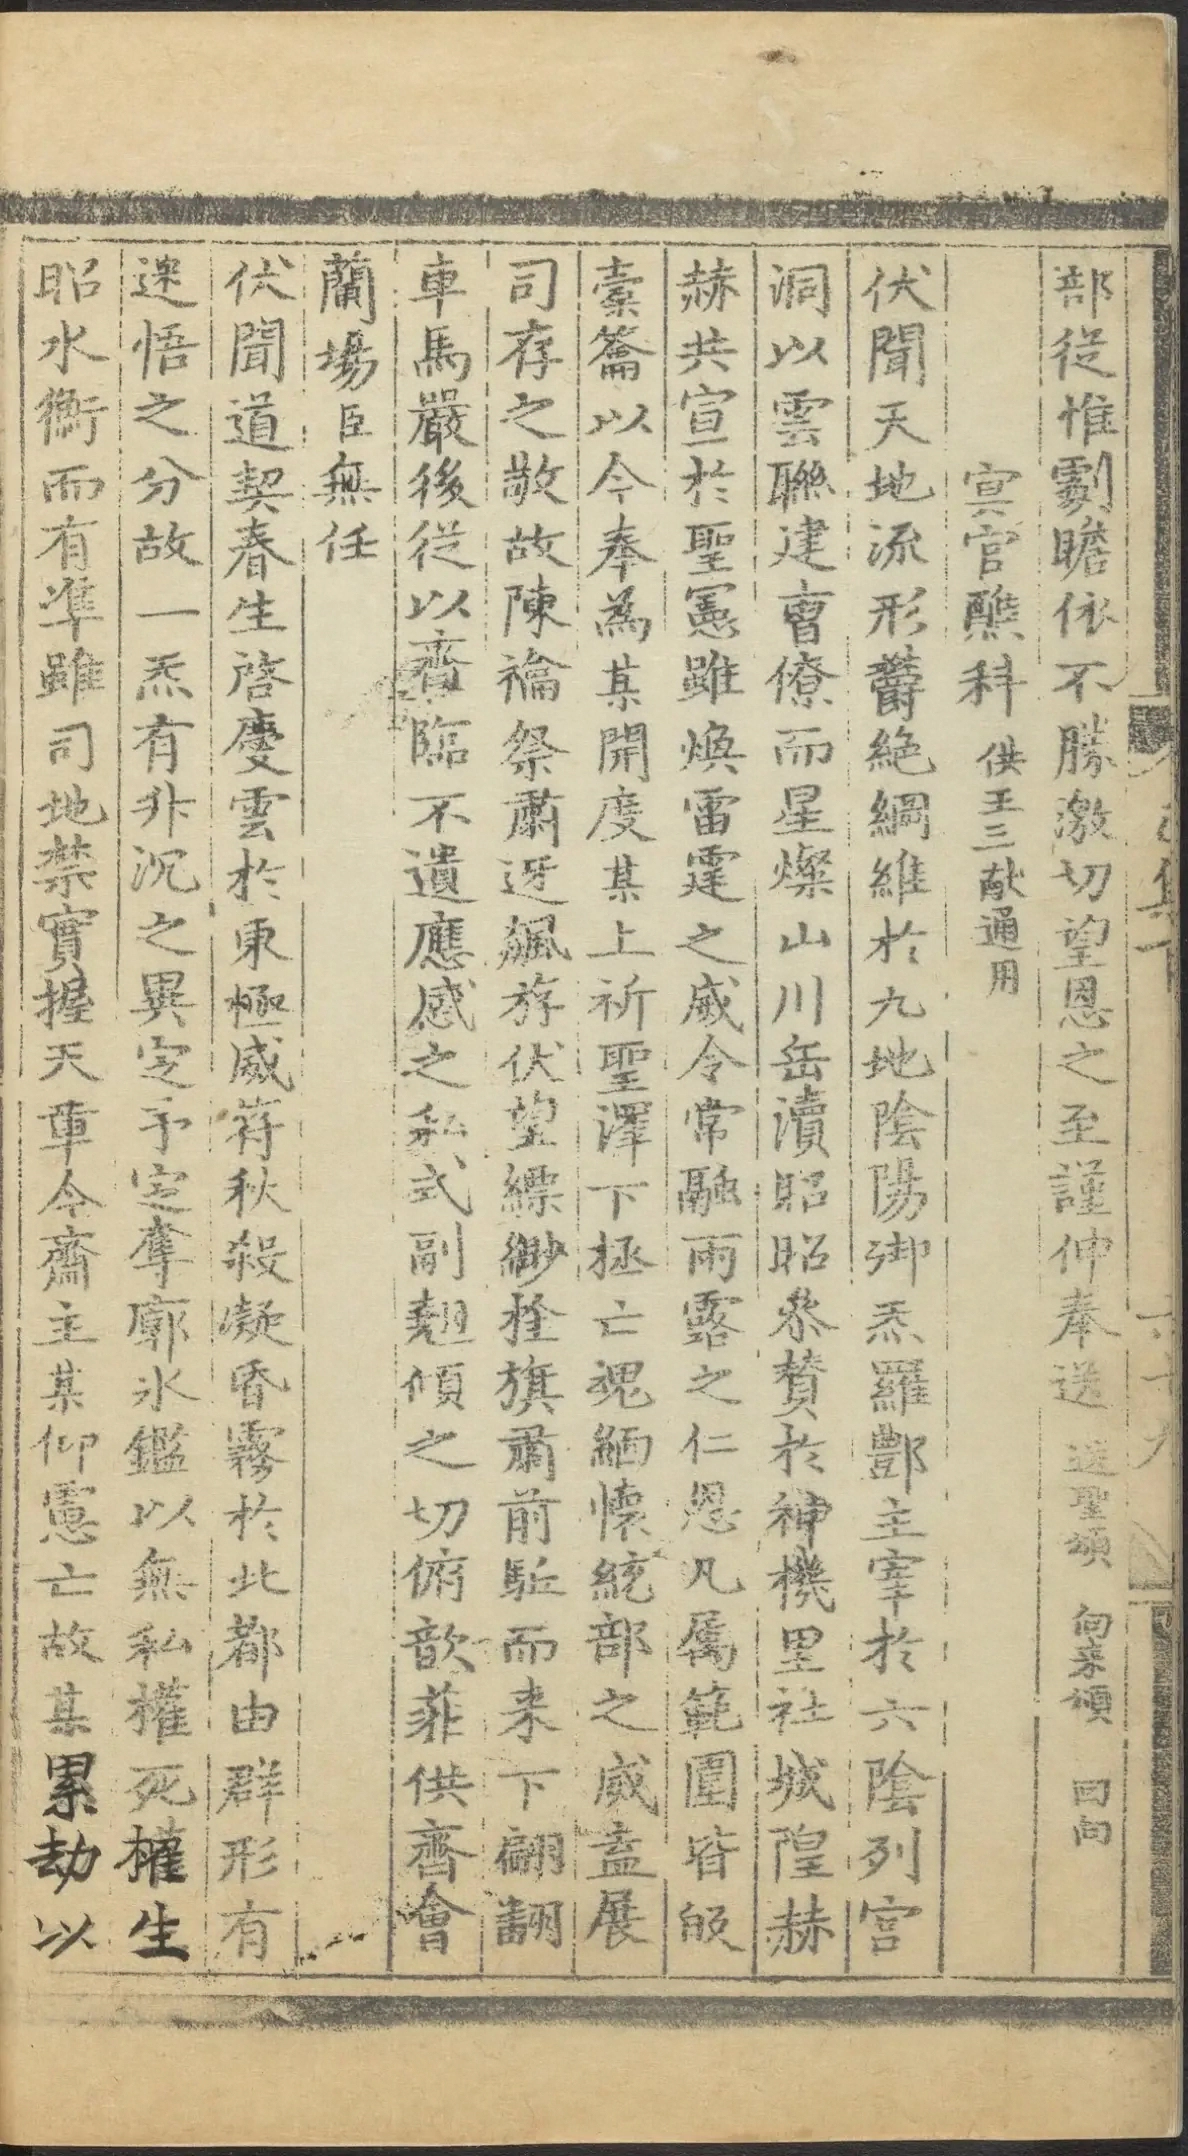 部從惟劇瞻依不勝激切望恩之至謹伸奉送 送聖頌 向來頌 回向
冥官醮科 供王三献通用
伏聞天地流形欝絶綱維於九地陰陽御炁羅酆主宰於六陰列宮
洞以雲聯建曺僚而星燦山川岳瀆昭昭叅賛於神機里社城隍赫
赫共宣於聖憲雖煥雷霆之威令常融雨露之仁恩凡属範圍皆皈
橐籥以今奉為某開度某上祈聖澤下拯亡魂緬懷統部之威盍展
司存之敬故陳禴祭肅迓飆斿伏望縹緲拴旗肅前駈而来下翩翻
車馬嚴後從以齊臨不遺應感之私式副翹傾之切俯歆菲供齊會
蘭場臣無任
伏聞道契春生啓慶雲於東極威符秋殺凝昏霧於北都由群形有
迷悟之分故一炁有升沉之異定予定奪廓氷鑑以無私權死權生
昭水衡而有準雖司地禁實握天章今齋主某仰憲亡故某累劫以